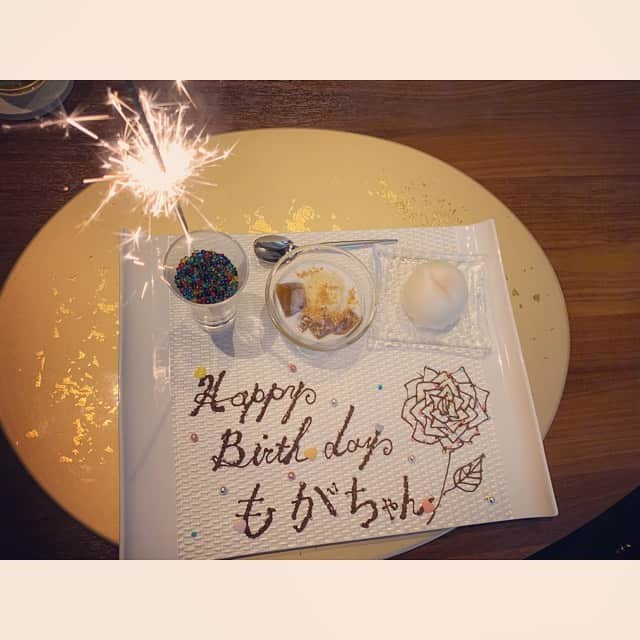 Happy
Birthday
もがちゃん